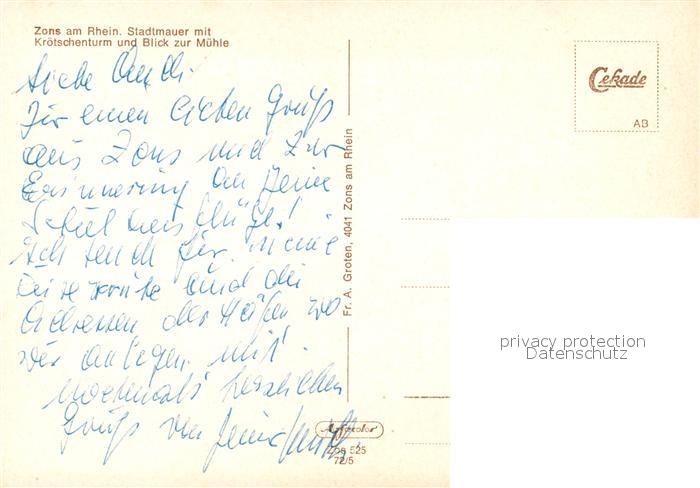 Zons am Rhein. Stadtmauer mit
Krötschenturm und Blick zur Mühle
Liebe
Für einen lieben Gruß
aus Zons und zur
Erinnerung an Deine
Schulausflüge!
Ich send Dir meine
Reiseroute und die
Adressen der Häfen wo
wir anlegen mit.
Nochmals herzlichen
Gruß von Deiner
Fr. A. Groten, 4041 Zons am Rhein
Cekade
AB
Agfacolor
Zos 525
72/5
privacy protection
Datenschutz